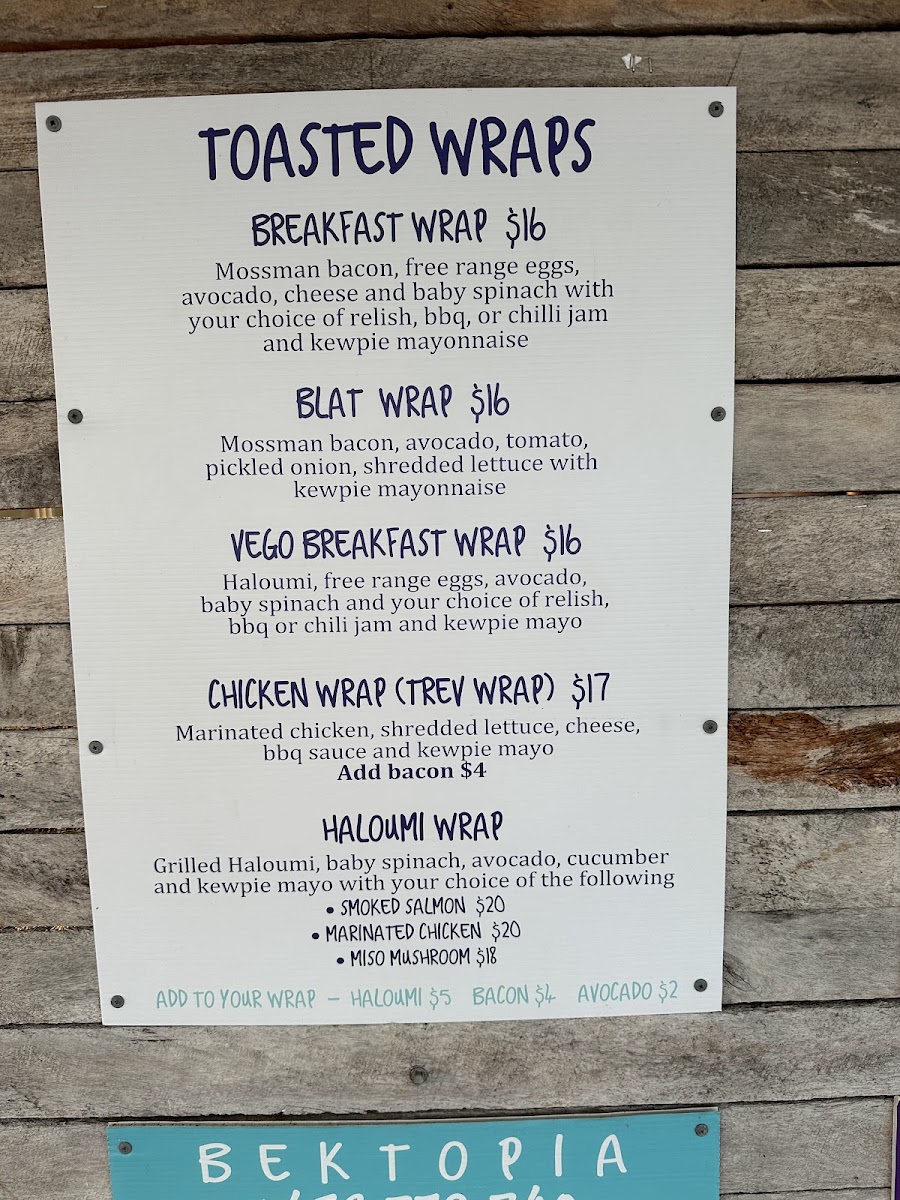 TOASTED WRAPS
BREAKFAST WRAP $16
Mossman bacon, free range eggs,
avocado, cheese and baby spinach with
your choice of relish, bbq, or chilli jam
and kewpie mayonnaise
BLAT WRAP $16
Mossman bacon, avocado, tomato,
pickled onion, shredded lettuce with
kewpie mayonnaise
VEGO BREAKFAST WRAP $16
Haloumi, free range eggs, avocado,
baby spinach and your choice of relish,
bbq or chili jam and kewpie mayo
CHICKEN WRAP (TREV WRAP) $17
Marinated chicken, shredded lettuce, cheese,
bbq sauce and kewpie mayo
Add bacon $4
HALOUMI WRAP
Grilled Haloumi, baby spinach, avocado, cucumber
and kewpie mayo with your choice of the following
• SMOKED SALMON $20
• MARINATED CHICKEN $20
• MISO MUSHROOM $18
ADD TO YOUR WRAP – HALOUMI $5 BACON $4 AVOCADO $2
BEKTOPIA